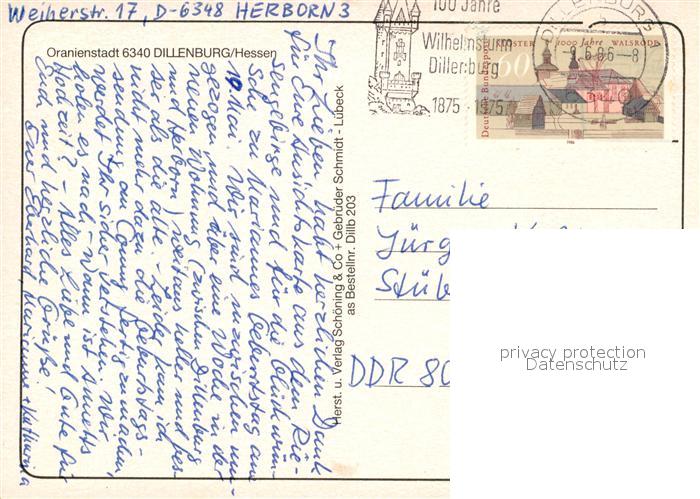 Weiherstr. 17, D-6348 HERBORN 3
Oranienstadt 6340 DILLENBURG/Hessen
100 Jahre
Wilhelmsturm
Dillenburg
1875 - 1975
DILLENBURG
-6.6.86-8
KLOSTER 1000 Jahre WALSRODE
60
Deutsche Bundespost
1986
Ihr Lieben, habt herzlichen Dank
für Eure Ansichtskarte aus dem Rie-
sengebirge und für die Glückwün-
sche zu Mariannes Geburtstag am
10. Mai. Wir sind inzwischen um-
gezogen und über eine Woche in der
neuen Wohnung (zwischen Dillenburg
und Herborn), weitaus heller und bes-
ser als die alte. Leider kam ich
nicht mehr dazu die Geburtstags-
sendung an Conny fertig zu machen,
werdet Ihr sicher verstehen. Wir
holen es nach. - Wann ist Annetts
Hochzeit? - Alles Liebe und Gute für
Euch und herzliche Grüße!
Eure Marianne + Katharina
Herst. u. Verlag Schöning & Co + Gebrüder Schmidt - Lübeck
as Bestellnr. Dillb 203
Familie
Jürg
Stüb
DDR 80
privacy protection
Datenschutz